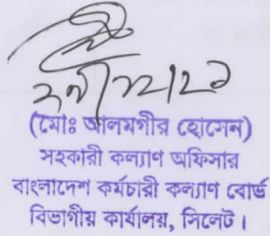 (মোঃ আলমগীর হোসেন)
সহকারী কল্যাণ অফিসার
বাংলাদেশ কর্মচারী কল্যাণ বোর্ড
বিভাগীয় কার্যালয়, সিলেট।